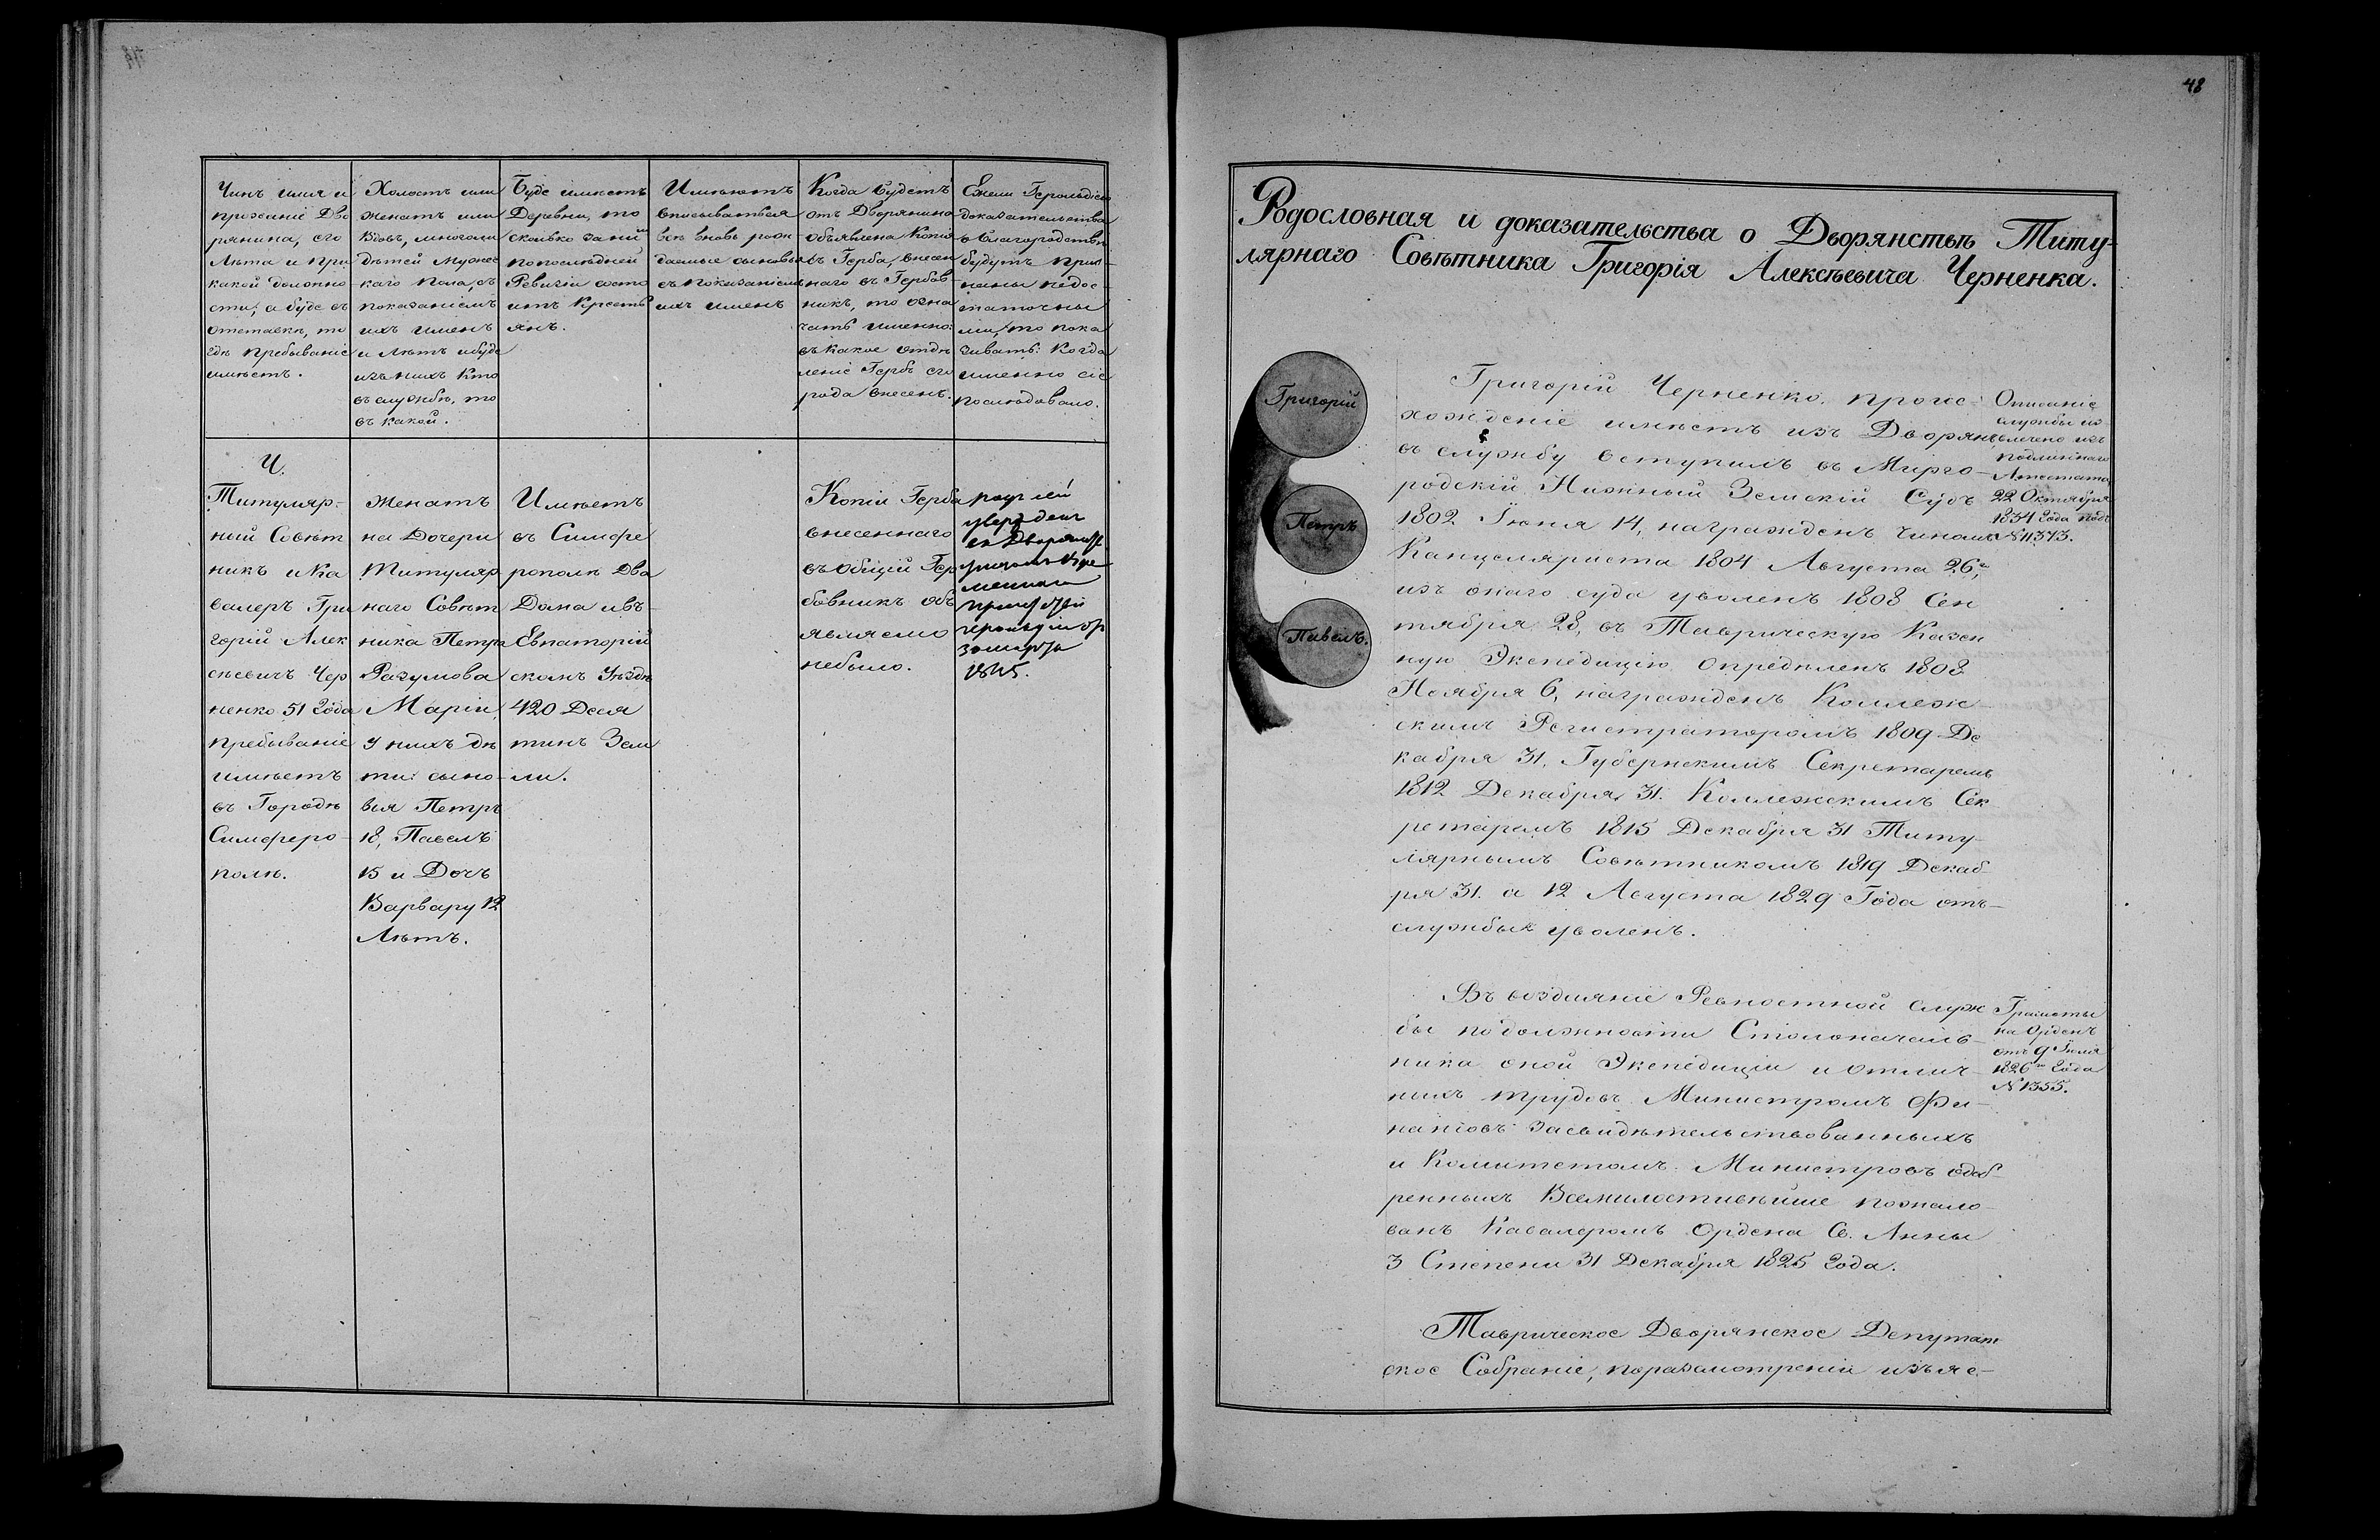 Чинъ имя и
прозаніе Дво
рянина, его
Лѣта и при
какой должно
сти, а буде въ
отставкѣ, то
гдѣ пребываніе
имѣетъ.
Холостъ или
женатъ или
Вдовъ, многоли
дѣтей мужес
каго пола, съ
показаніемъ
ихъ именъ
и Лѣтъ и буде
изъ нихъ кто
въ службѣ, то
въ какой.
Буде имѣетъ
Деревни, то
сколько за ним
попослѣдней
Ревизіи состо
итъ Крестъ
янъ.
Имѣютъ
вписываться
всѣ вновь рож
даемые сыновья
съ показаніемъ
ихъ именъ
Когда будетъ
отъ Дворянина
объявлена Копія
съ Герба, внесен
наго въ Гербов
никъ, то озна
чать именно:
въ какое отдѣ
леніе Гербъ его
рода внесенъ.
Ежели Герольдіею
доказательства
о благородствѣ
будутъ приз-
наны недос-
таточны
ми, то пока
зывать: Когда
именно сіе
последовало.
Ч.
Титуляр-
ный Совѣт
никъ и Ка
валеръ Гри
горій Алек
сѣевичъ Чер
ненко 51 года
пребываніе
имѣетъ
въ Городѣ
Симферо-
полѣ.
женатъ
на Дочери
Титуляр
наго Совѣт
ника Петра
Разумова
Маріи,
у нихъ дѣ
ти: сыно-
вья Петръ
18, Павелъ
15 и Дочь
Варвару 12
Лѣтъ.
Имѣетъ
въ Симфе
рополѣ Два
Дома и въ
Евпаторій
скомъ Уѣздѣ
420 Деся
тинъ Зем
ли.
Копіи Герба
внесеннаго
въ Общій Гер
бовникъ объ
являемо
небыло.
1845.
48
Родословная и доказательства о Дворянствѣ Титу-
лярнаго Совѣтника Григорія Алексѣевича Черненка.
Григорій
Петръ
Павелъ.
Григорій Черненко, проис-
хожденіе имѣетъ изъ Дворянъ,
въ службу вступилъ въ Мирго-
родскій Нижный Земскій Судъ
1802 Іюня 14, награжденъ чиномъ
Канцеляриста 1804 Августа 26,
изъ онаго суда уволенъ 1808 Сен
тября 28, въ Таврическую Казен
ную Экспедицію опредѣленъ 1808
Ноября 6, награжденъ Коллеж-
скимъ Регистраторомъ 1809 Де
кабря 31, Губернскимъ Секретаремъ
1812 Декабря 31. Коллежскимъ Сек
ретаремъ 1815 Декабря 31 Титу-
лярнымъ Совѣтникомъ 1819 Декаб-
ря 31. а 12 Августа 1829 Года отъ-
службы уволенъ.
Описаніе
службы из-
влечено изъ
подлиннаго
Аттестата
22 Октября
1834 года подъ
№ 11373.
Въ воздаяніе Ревностной служ
бы по должности Столоначаль-
ника оной Экспедиціи и отлич-
ныхъ трудовъ Министромъ Фи-
нансовъ засвидѣтельствованныхъ
и Комитетомъ Министровъ одоб-
ренныхъ Всемилостивѣйше пожало-
ванъ Кавалеромъ Ордена Св. Анны
3 Степени 31 Декабря 1825 года.
Грамоты
на Орденъ
отъ 9 Іюля
1826го года
№ 1355.
Таврическое Дворянское Депутат
ское Собраніе, поразсмотреніи изъяс-